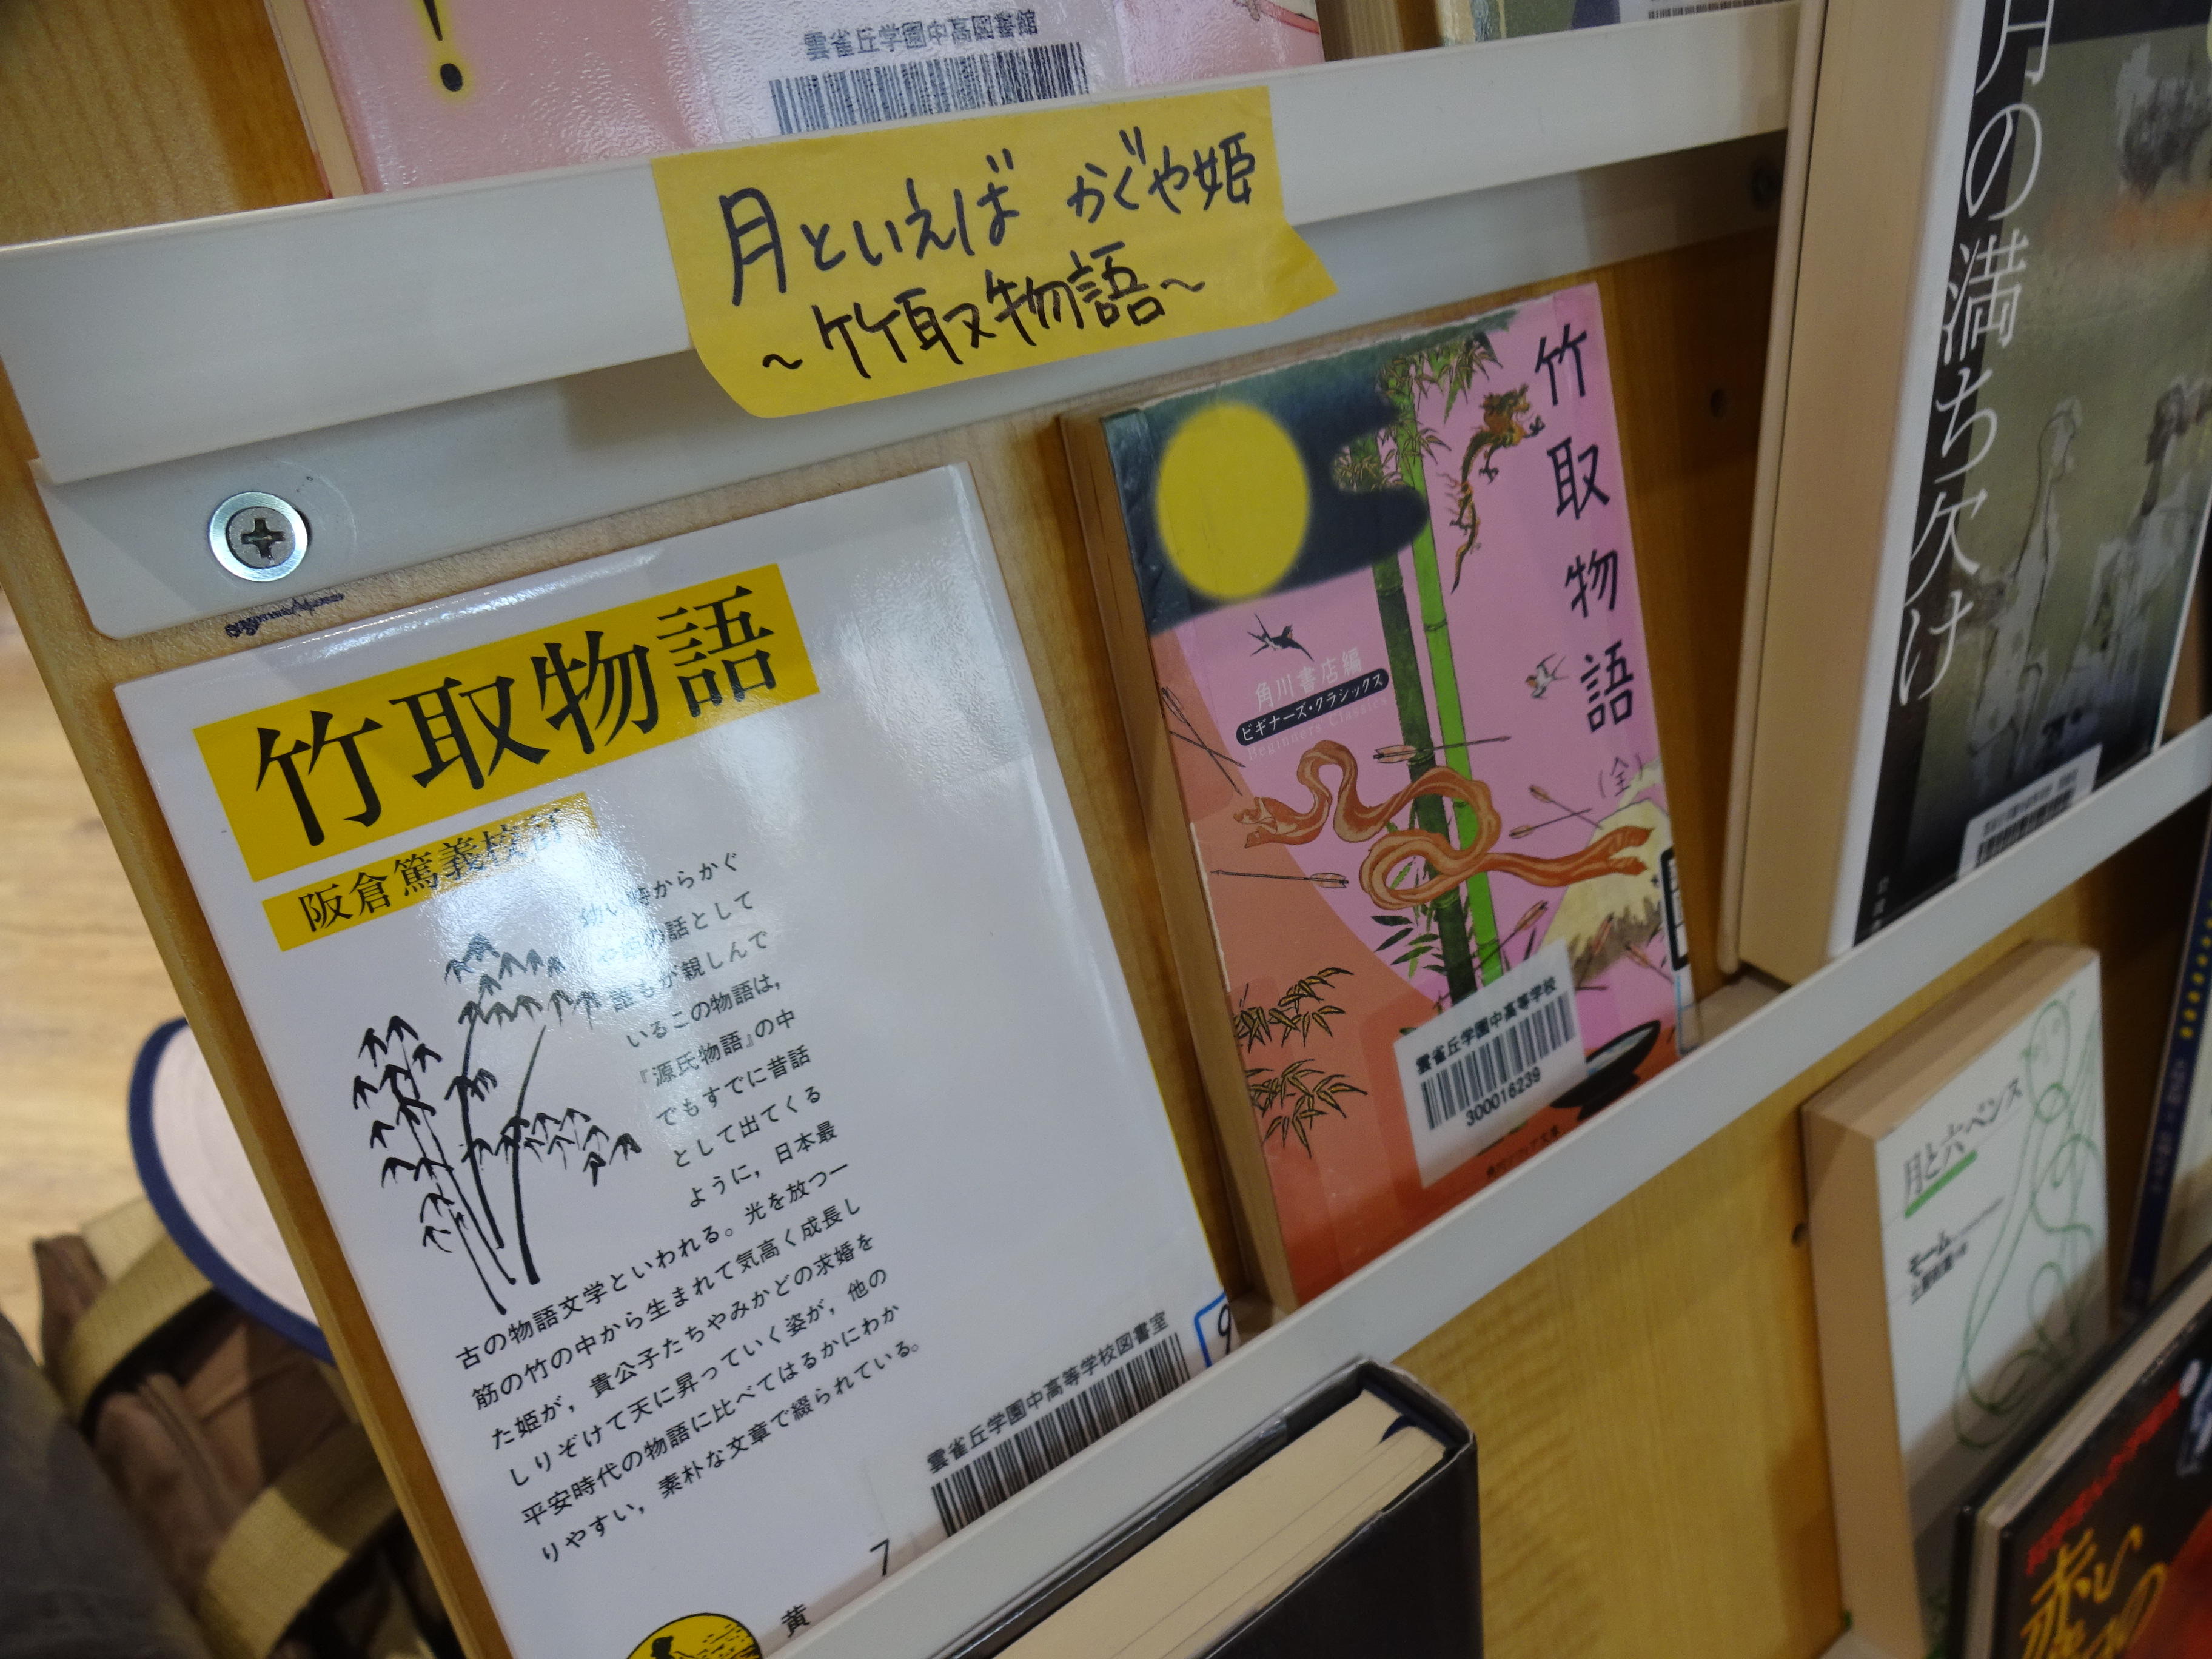 !
雲雀丘学園中高図書館
月といえば かぐや姫
~竹取物語~
竹取物語
阪倉篤義校訂
幼い時からかぐ
や姫の話として
誰もが親しんで
いるこの物語は,
『源氏物語』の中
でもすでに昔話
として出てくる
ように,日本最
古の物語文学といわれる。光を放つ一
筋の竹の中から生まれて気高く成長し
た姫が,貴公子たちやみかどの求婚を
しりぞけて天に昇っていく姿が,他の
平安時代の物語に比べてはるかにわか
りやすい,素朴な文章で綴られている。
雲雀丘学園中高等学校図書室
9
黄
7
竹取物語(全)
角川書店編
ビギナーズ・クラシックス
Beginners Classics
雲雀丘学園中高等学校
300016239
月の満ち欠け
月と六ペンス
モーム
赤い